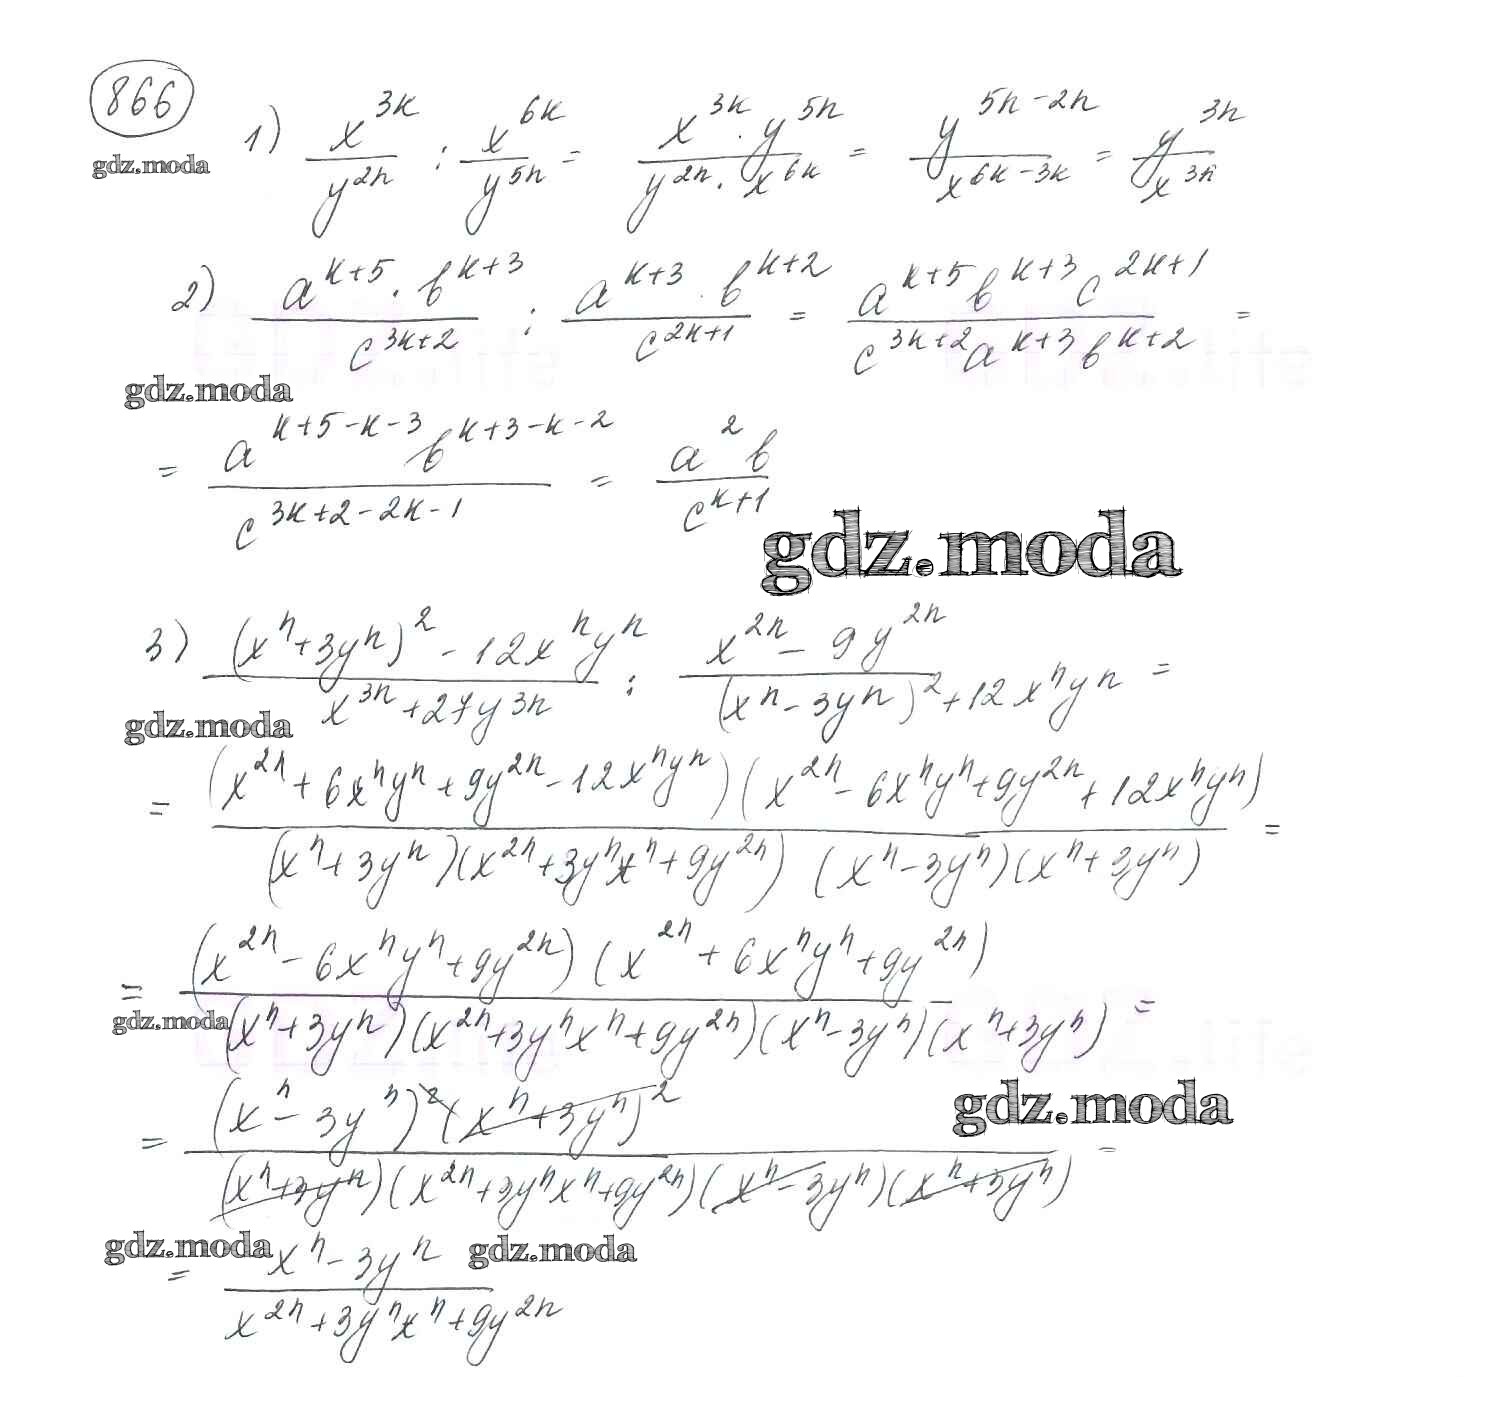 866
gdz.moda
1) x^{3k}/y^{2n} : x^{6k}/y^{5n} = x^{3k} · y^{5n}/y^{2n} · x^{6k} = y^{5n-2n}/x^{6k-3k} = y^{3n}/x^{3k}
2) a^{k+5} · b^{k+3}/c^{3k+2} : a^{k+3} · b^{k+2}/c^{2k+1} = a^{k+5} b^{k+3} c^{2k+1}/c^{3k+2} a^{k+3} b^{k+2} =
gdz.moda
= a^{k+5-k-3} b^{k+3-k-2}/c^{3k+2-2k-1} = a^2 b/c^{k+1}
gdz.moda
3) (x^n+3y^n)^2 - 12x^n y^n/x^{3n}+27y^{3n} : x^{2n} - 9y^{2n}/(x^n-3y^n)^2+12x^n y^n =
gdz.moda
= (x^{2n}+6x^n y^n+9y^{2n}-12x^n y^n)(x^{2n}-6x^n y^n+9y^{2n}+12x^n y^n)/(x^n+3y^n)(x^{2n}+3y^n x^n+9y^{2n})(x^n-3y^n)(x^n+3y^n) =
= (x^{2n}-6x^n y^n+9y^{2n})(x^{2n}+6x^n y^n+9y^{2n})/(x^n+3y^n)(x^{2n}+3y^n x^n+9y^{2n})(x^n-3y^n)(x^n+3y^n) =
gdz.moda
= (x^n-3y^n)^2(x^n+3y^n)^2/(x^n+3y^n)(x^{2n}+3y^n x^n+9y^{2n})(x^n-3y^n)(x^n+3y^n) =
gdz.moda
gdz.moda gdz.moda
= x^n-3y^n/x^{2n}+3y^n x^n+9y^{2n}